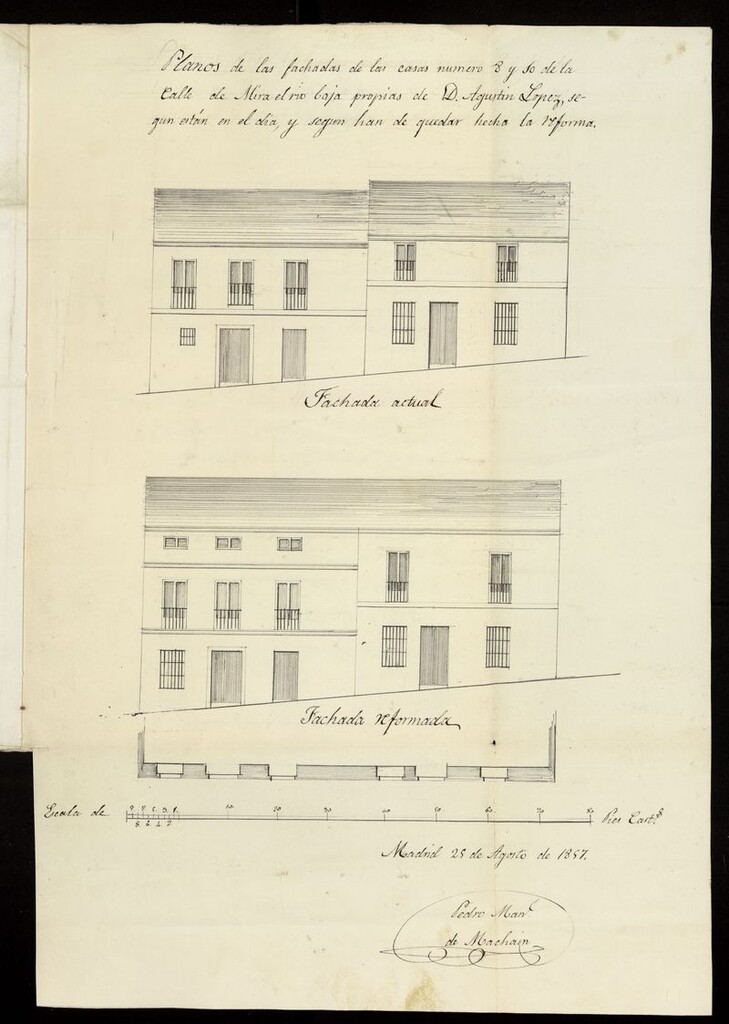 Planos de las fachadas de las casas numero 8 y 10 de la
Calle de Mira el rio baja propias de D. Agustin Lopez, se-
gun están en el dia, y segun han de quedar hecha la reforma.
Fachada actual
Fachada reformada
Escala de 9. 7. 5. 3. 1. 10 20 30 40 50 60 70 80 Pies Cast.s
8 6 4 2
Madrid 25 de Agosto de 1857.
Pedro Man.l
de Machain